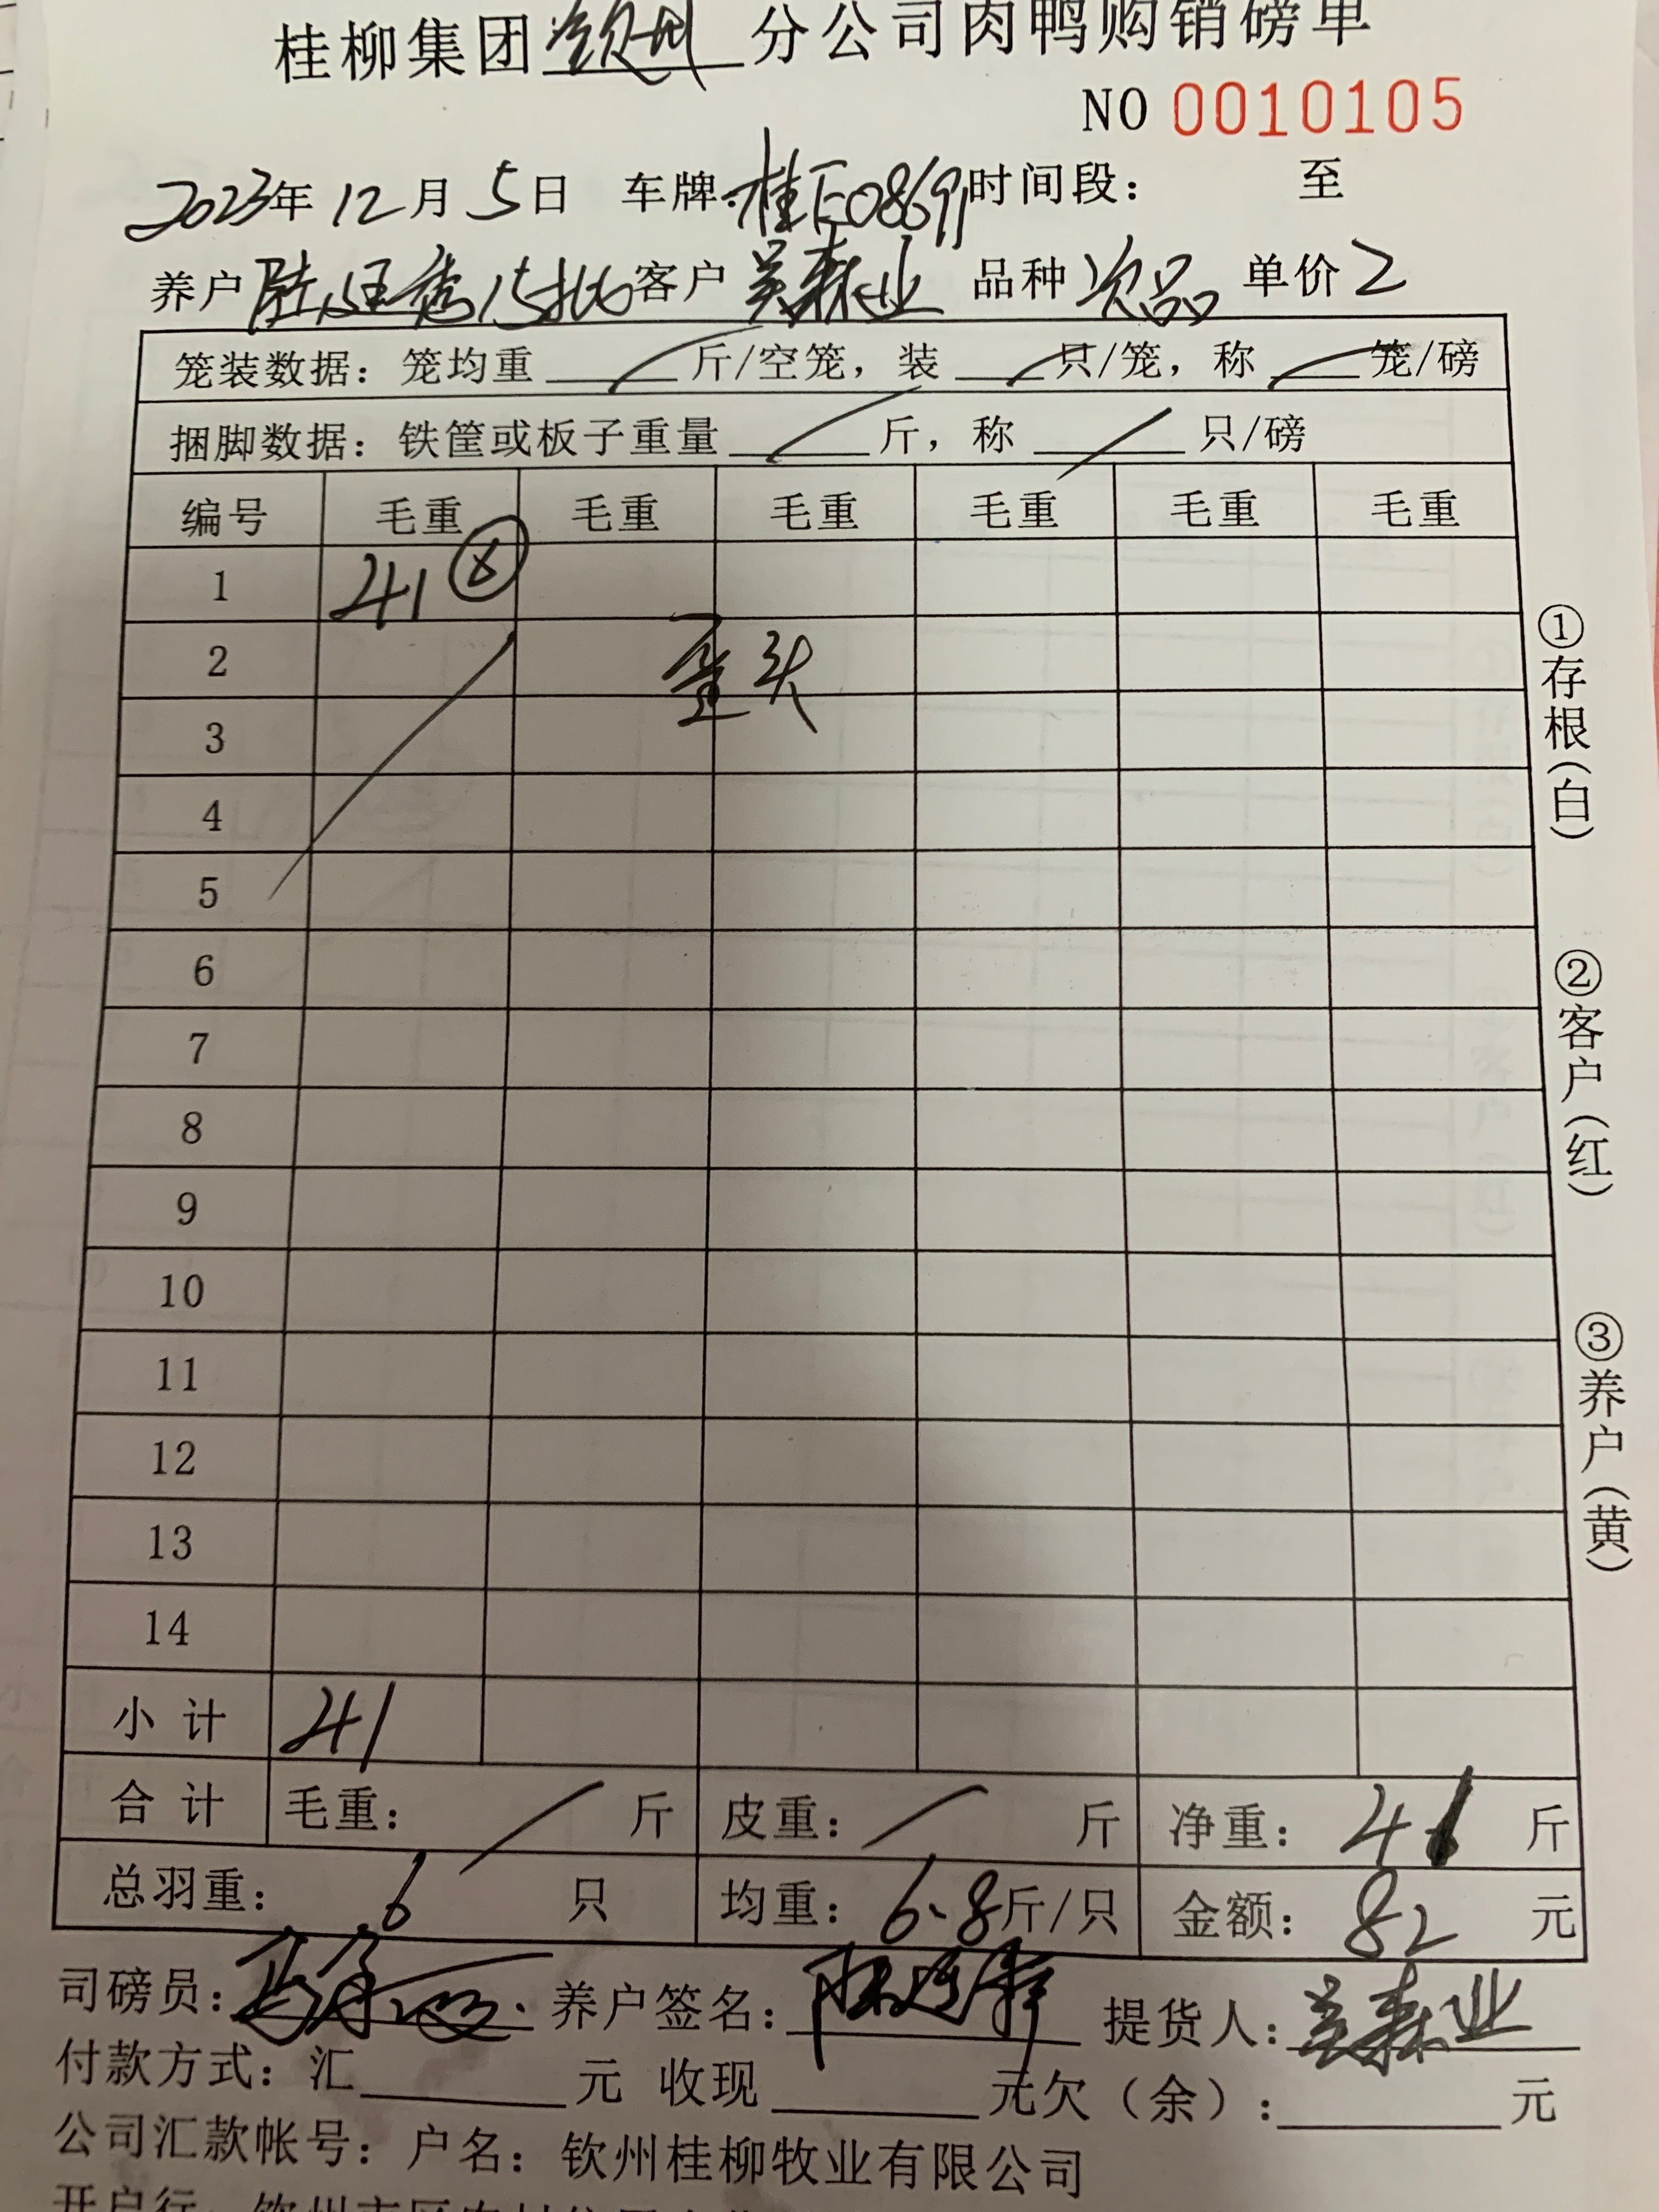 桂柳集团钦州分公司肉鸭购销磅单
NO 0010105
2023年12月5日 车牌:桂E08691时间段: 至
养户 15批 客户 业 品种 次品 单价 2
笼装数据: 笼均重 斤/空笼, 装 只/笼, 称 笼/磅
捆脚数据: 铁筐或板子重量 斤, 称 只/磅
编号 毛重 毛重 毛重 毛重 毛重 毛重
1 41
2 歪头
3
4
5
6
7
8
9
10
11
12
13
14
小计 41
合计 毛重: 斤 皮重: 斤 净重: 41 斤
总羽重: 6 只 均重: 6.8斤/只 金额: 82 元
司磅员: 养户签名: 提货人: 业
付款方式: 汇 元 收现 元欠(余): 元
公司汇款帐号: 户名: 钦州桂柳牧业有限公司
①存根(白)
②客户(红)
③养户(黄)